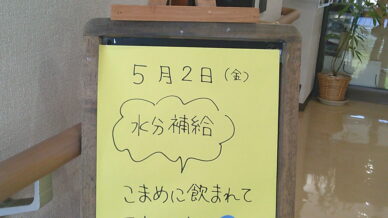 5月2日(金)
水分補給
こまめに飲まれて